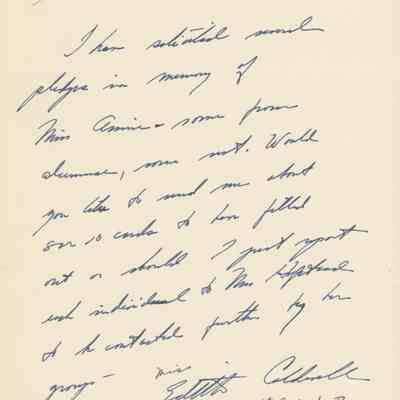 I have solicited several
pledges in memory of
Miss Annie - some from
alumnae, some not. Would
you like to send me about
5 or 10 cards to have filled
out or should I just report
each individual to Mrs.
to be contacted further by her
group -
Miss Edith Caldwell